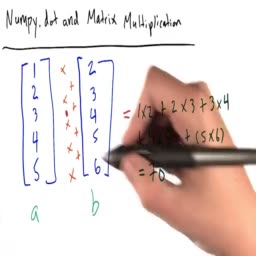 Numpy.dot and Matrix Multiplication
1 × 2
2 + 3
3 × 4 = 1×2 + 2×3 + 3×4
4 × 5 + (5×6)
5 × 6 = 70
a b